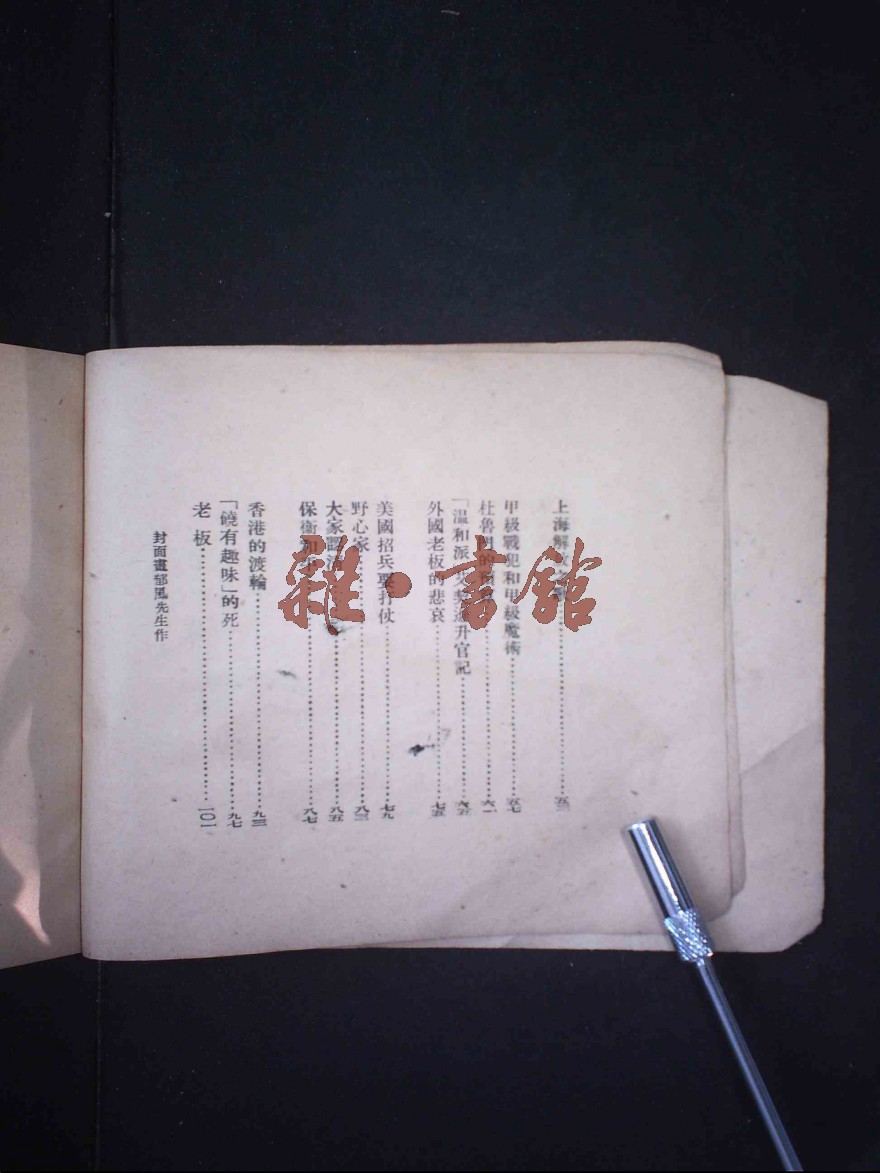 上海解放
五三
甲級戰犯和甲級魔術
五七
杜魯門的
六一
「溫和派」
升官記
六五
外國老板的悲哀
七五
美國招兵要打仗
七九
野心家
八三
大家
八五
保衛和平
八七
香港的渡輪
九三
「饒有趣味」的死
九七
老板
一〇一
封面畫郁風先生作
雜·書館